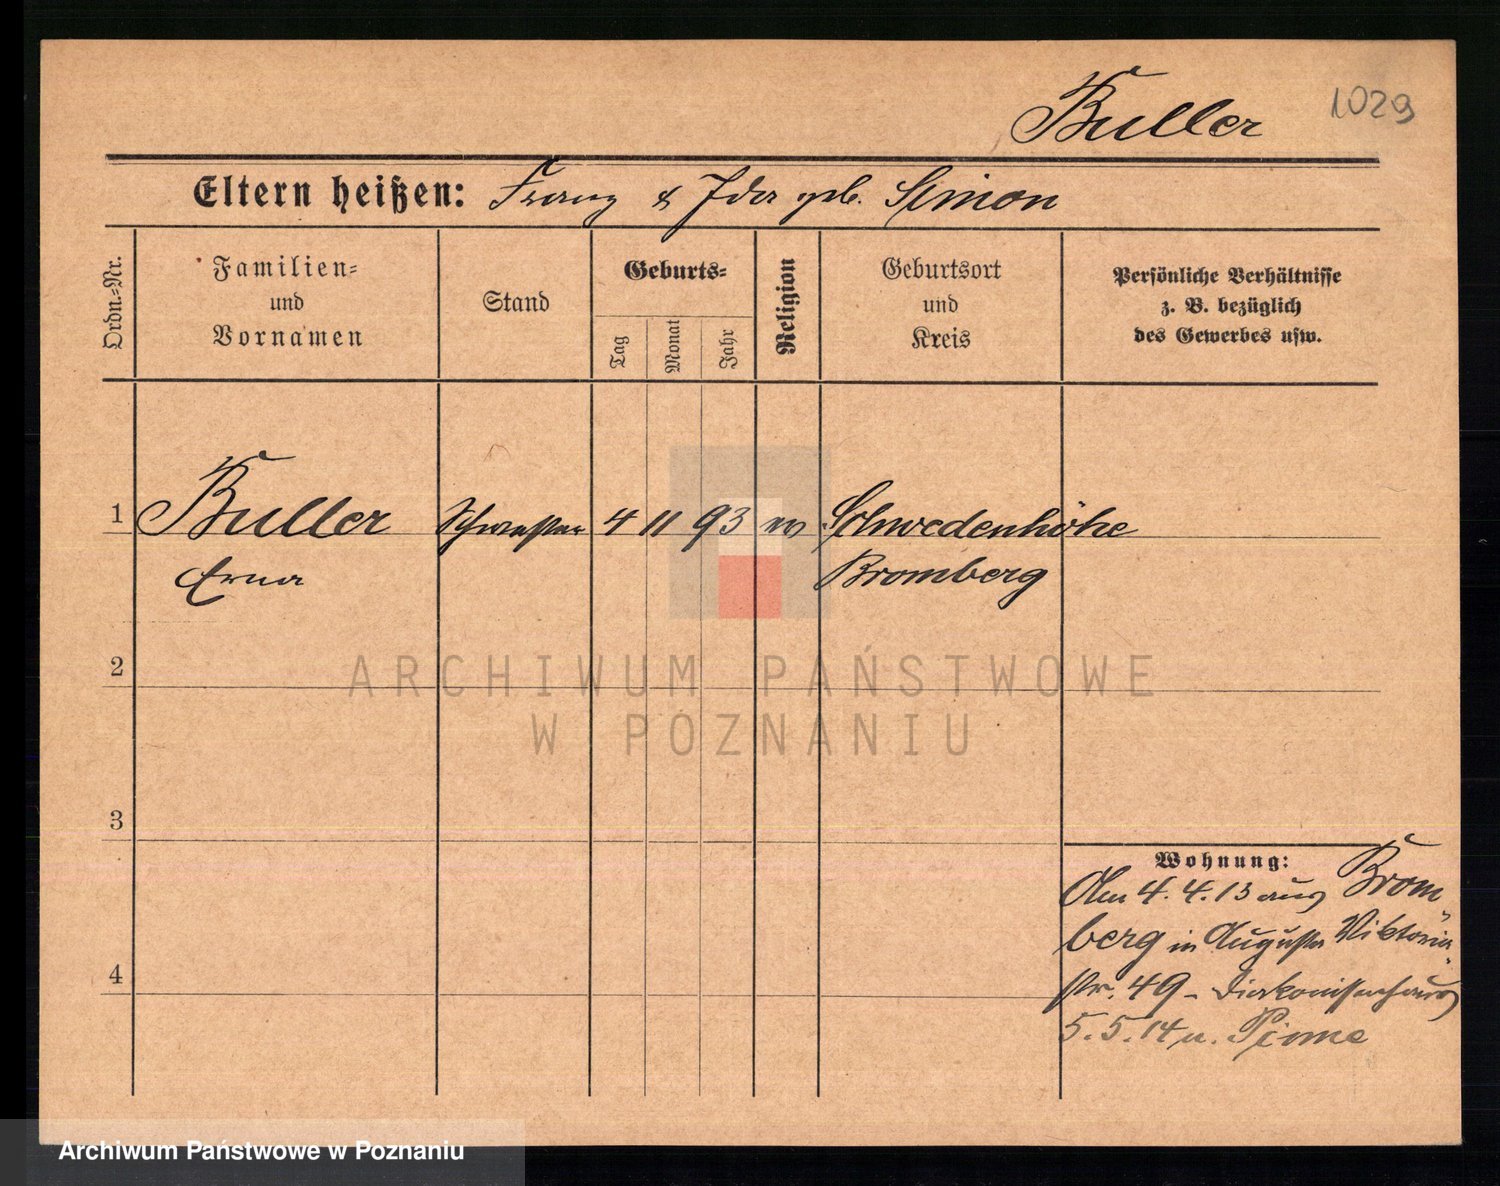 Buller
1029
Eltern heißen: Franz & Ida geb. Simon
Ordn.-Nr.
Familien-
und
Vornamen
Stand
Geburts-
Tag
Monat
Jahr
Religion
Geburtsort
und
Kreis
Persönliche Verhältnisse
z. B. bezüglich
des Gewerbes usw.
1 Buller Schwester 4 11 93 ev Schwedenhöhe
Erna Bromberg
2
ARCHIWUM PAŃSTWOWE
W POZNANIU
3
Wohnung:
Am 4.4.13 aus Brom-
berg in Augusta Viktoria-
str. 49 - Diakonissenhaus
5.5.14 n. Pinne
4
Archiwum Państwowe w Poznaniu